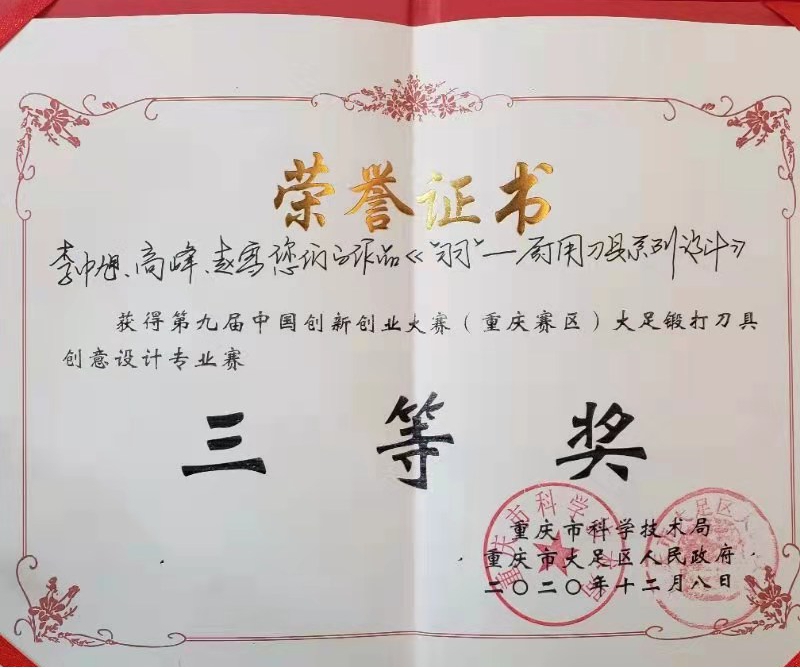 荣誉证书
李中旭、高峰、赵骞您们的作品《“羽”—厨用刀具系列设计》
获得第九届中国创新创业大赛（重庆赛区）大足锻打刀具
创意设计专业赛
三等奖
重庆市科学技术局
重庆市大足区人民政府
二〇二〇年十二月八日